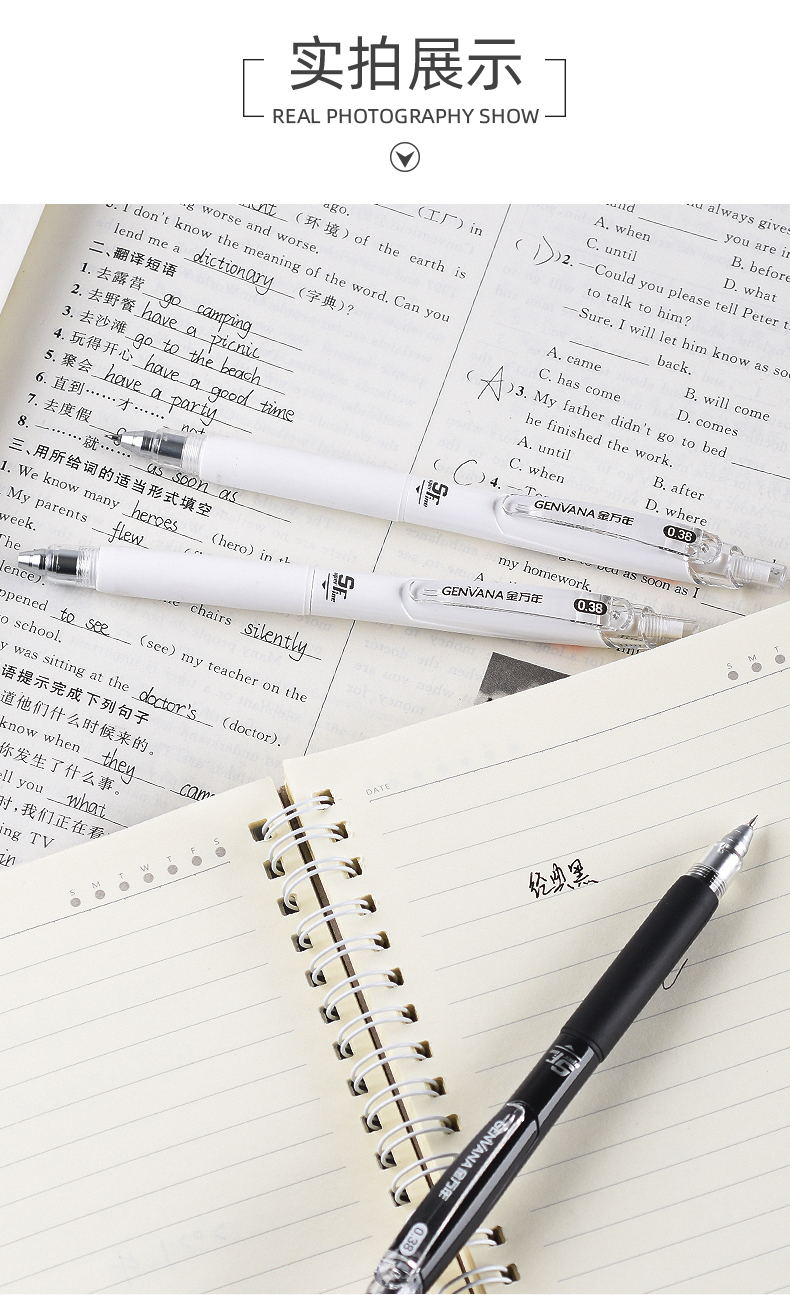 实拍展示
REAL PHOTOGRAPHY SHOW
ago.
（工厂）in
ng worse and worse.
（环境）of the earth is
I don't know the meaning of the word. Can you
lend me a dictionary （字典）?
二、翻译短语
1. 去露营 go camping
2. 去野餐 have a picnic
3. 去沙滩 go to the beach
4. 玩得开心 have a good time
5. 聚会 have a party
6. 直到……才……
7. 去度假
8. ……就…… as soon as
三、用所给词的适当形式填空
1. We know many heroes (hero) in th
. My parents flew
week.
The
lence).
ppened to see (see) my teacher on the
to school.
chairs silently
y was sitting at the doctor's (doctor).
语提示完成下列句子
道他们什么时候来的。
know when they cam
你发生了什么事。
ell you what
时,我们正在看
ing TV
and
d always gives
A. when
you are in
C. until
B. before
D. what
(D)2. —Could you please tell Peter t
to talk to him?
—Sure. I will let him know as soo
back.
A. came
B. will come
C. has come
D. comes
(A)3. My father didn't go to bed
he finished the work.
A. until
B. after
C. when
D. where
(C)4.
to bed as soon as I
my homework.
SF
GENVANA 金万年
0.38
SF
GENVANA 金万年
0.38
S M T
DATE
S M T W T F S
经典黑
SF
GENVANA 金万年
0.38